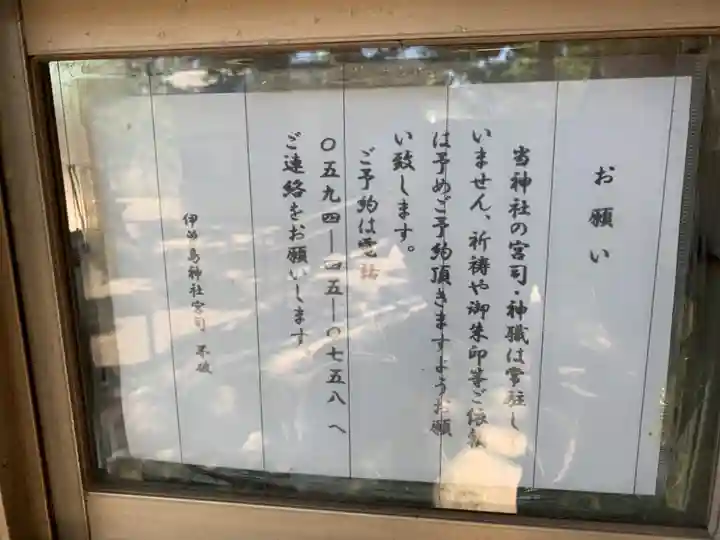 お願い
当神社の宮司・神職は常駐し
いません、祈祷や御朱印等ご依
は予めご予約頂きますようお願
い致します。
ご予約は電話
〇五九四―四五―〇七五八へ
ご連絡をお願いします
島神社宮司 不破